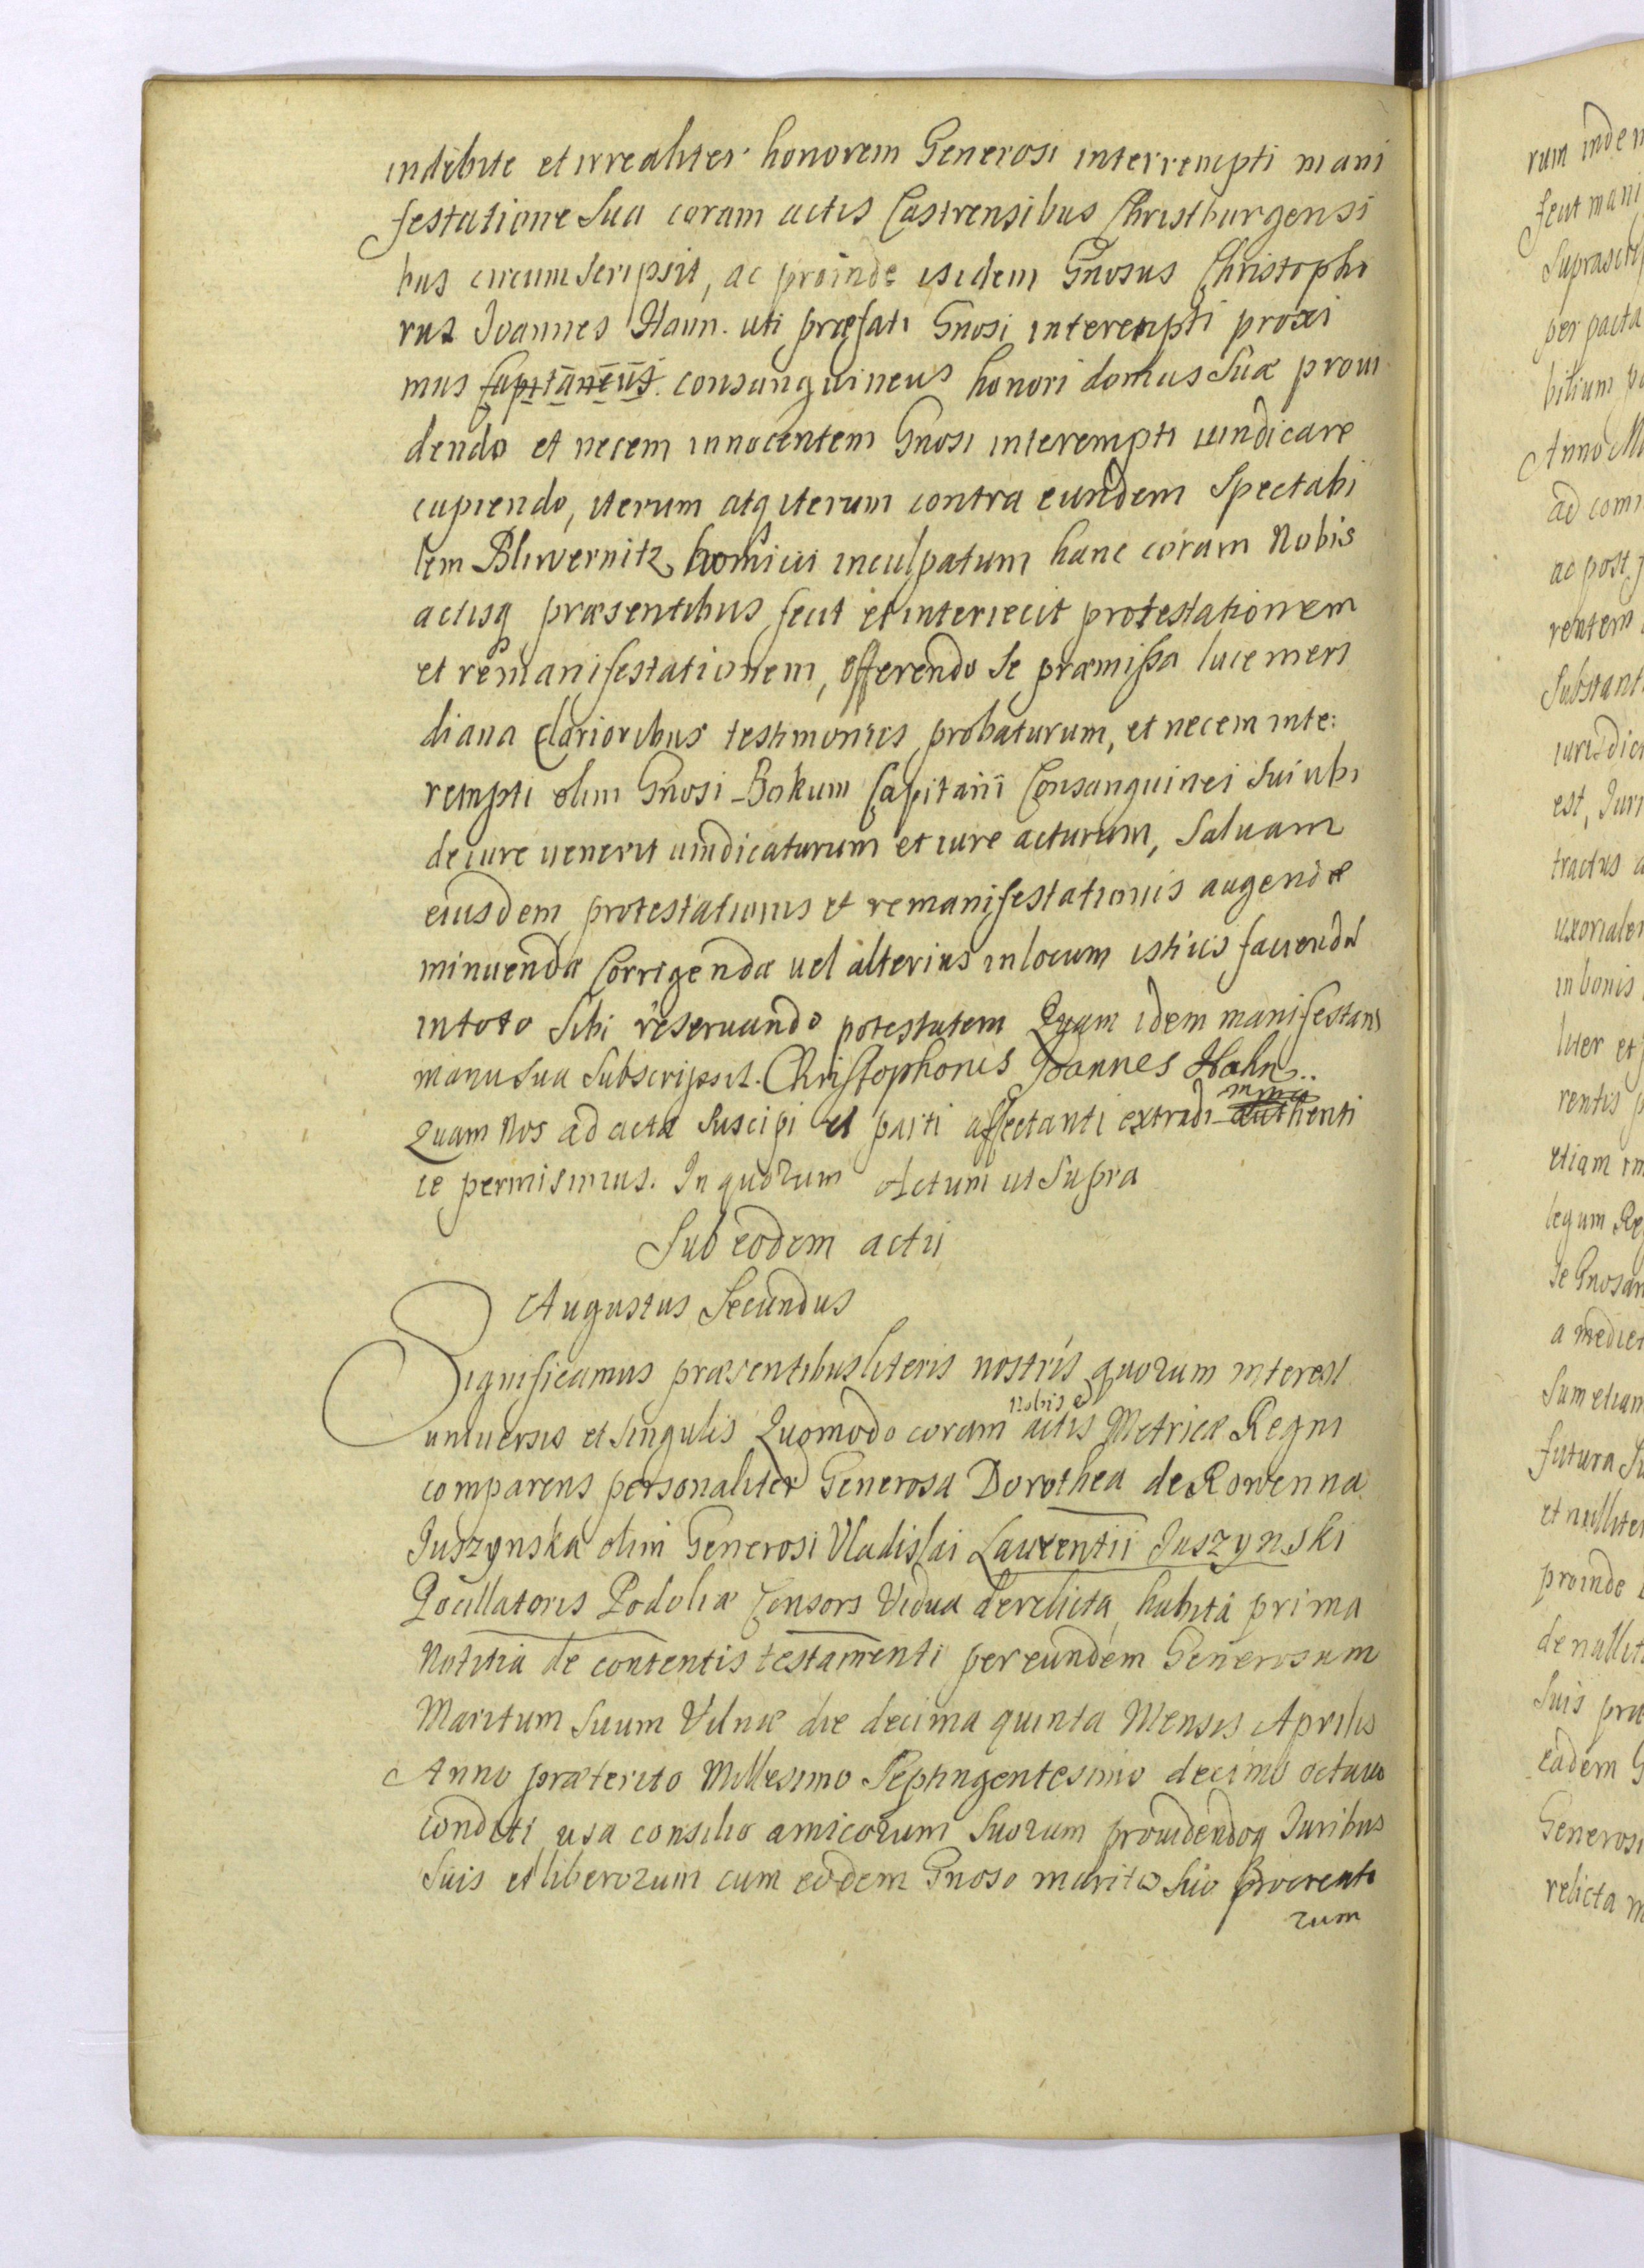 indebite et irrealiter honorem Generosi interrempti mani
festatione Sua coram actis Castrensibus Christburgensi
bus circumscripsit, ac proinde isidem Gnosus Christopho
rus Joannes Hann. uti præfati Gnosi interempti proxi
mus Capitaneus consanguineus honori domus Suæ proui
dendo et necem innocentem Gnosi interempti uindicare
cupiendo, iterum atq iterum contra eundem Spectabi
lem Bliwernitz homicii inculpatum hanc coram Nobis
actisq præsentibus fecit et interiecit protestationem
et remanifestationem, offerendo Se præmissa luce meri
diana Clarioribus testimoniis probaturum, et necem inte:
rempti olim Gnosi Bokum Capitanii Consanguinei Sui ubi
de iure uenerit uindicaturum et iure acturum, Saluam
eiusdem protestationis et remanifestationis augendæ
minuendæ Corrigendæ uel alterius in locum istius faciendæ
in toto Sibi reseruando potestatem Quam idem manifestans
manu Sua Subscripsit. Christophorus Joannes Hahn..
mma
Quam Nos ad acta Suscipi et parti affectanti extradi authenti
ce permisimus. In quorum Actum ut Supra
Sub eodem actu
Augustus Secundus
Significamus præsentibus literis nostris quorum interest
nobis et
uniuersis et Singulis Quomodo coram actis Metricæ Regni
comparens personaliter Generosa Dorothea de Rowenna
Juszynska olim Generosi Vladislai Laurentii Juszynski
Pocillatoris Podoliæ Consors Vidua derelicta habita prima
Notitia de contentis testamenti per eundem Generosum
Maritum Suum Vilnæ die decima quinta Mensis Aprilis
Anno præterito Millesimo Septingentesimo decimo octauo
conditi usa consilio amicorum Suorum prouidendoq Iuribus
Suis et liberorum cum eodem Gnoso marito Suo procreato
rum
rum inde
fecit mani
Suprascri
per pacta
bilium
Anno M
ad com
ac post
rentem
Substant
iurisdic
est, Iuri
tractus
uxoriale
in bonis
liter et
rentis
etiam
legum Re
Se Gnosam
a mediet
Sum etiam
futura
et nulliter
proinde
de nullit
Suis præ
eadem G
Generosi
relicta m